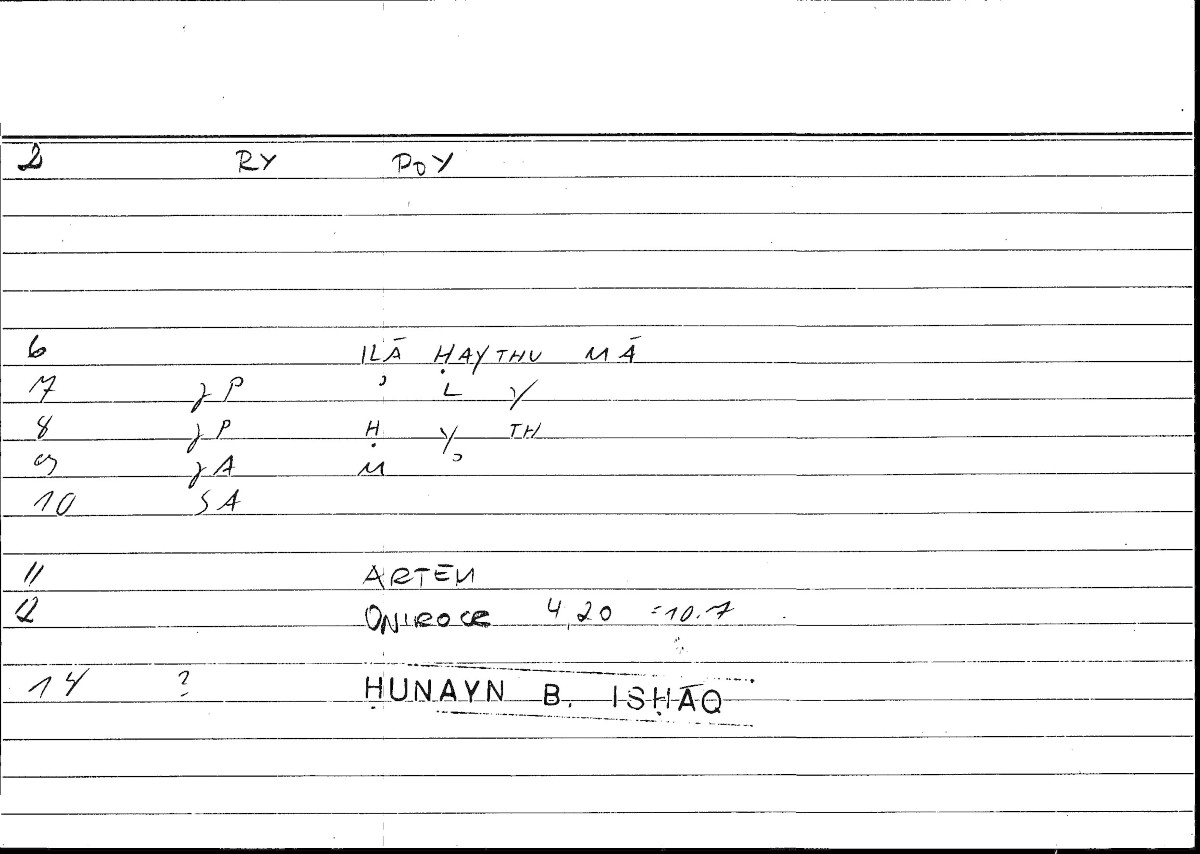 2 RY POY
6 ILĀ ḤAYTHU MĀ
7 γP ʾ L Y
8 γP Ḥ Y TH
9 γA M
10 SA
11 ARTEM
12 ONIROCR 4,20 =10.7
14 ? ḤUNAYN B. ISḤĀQ